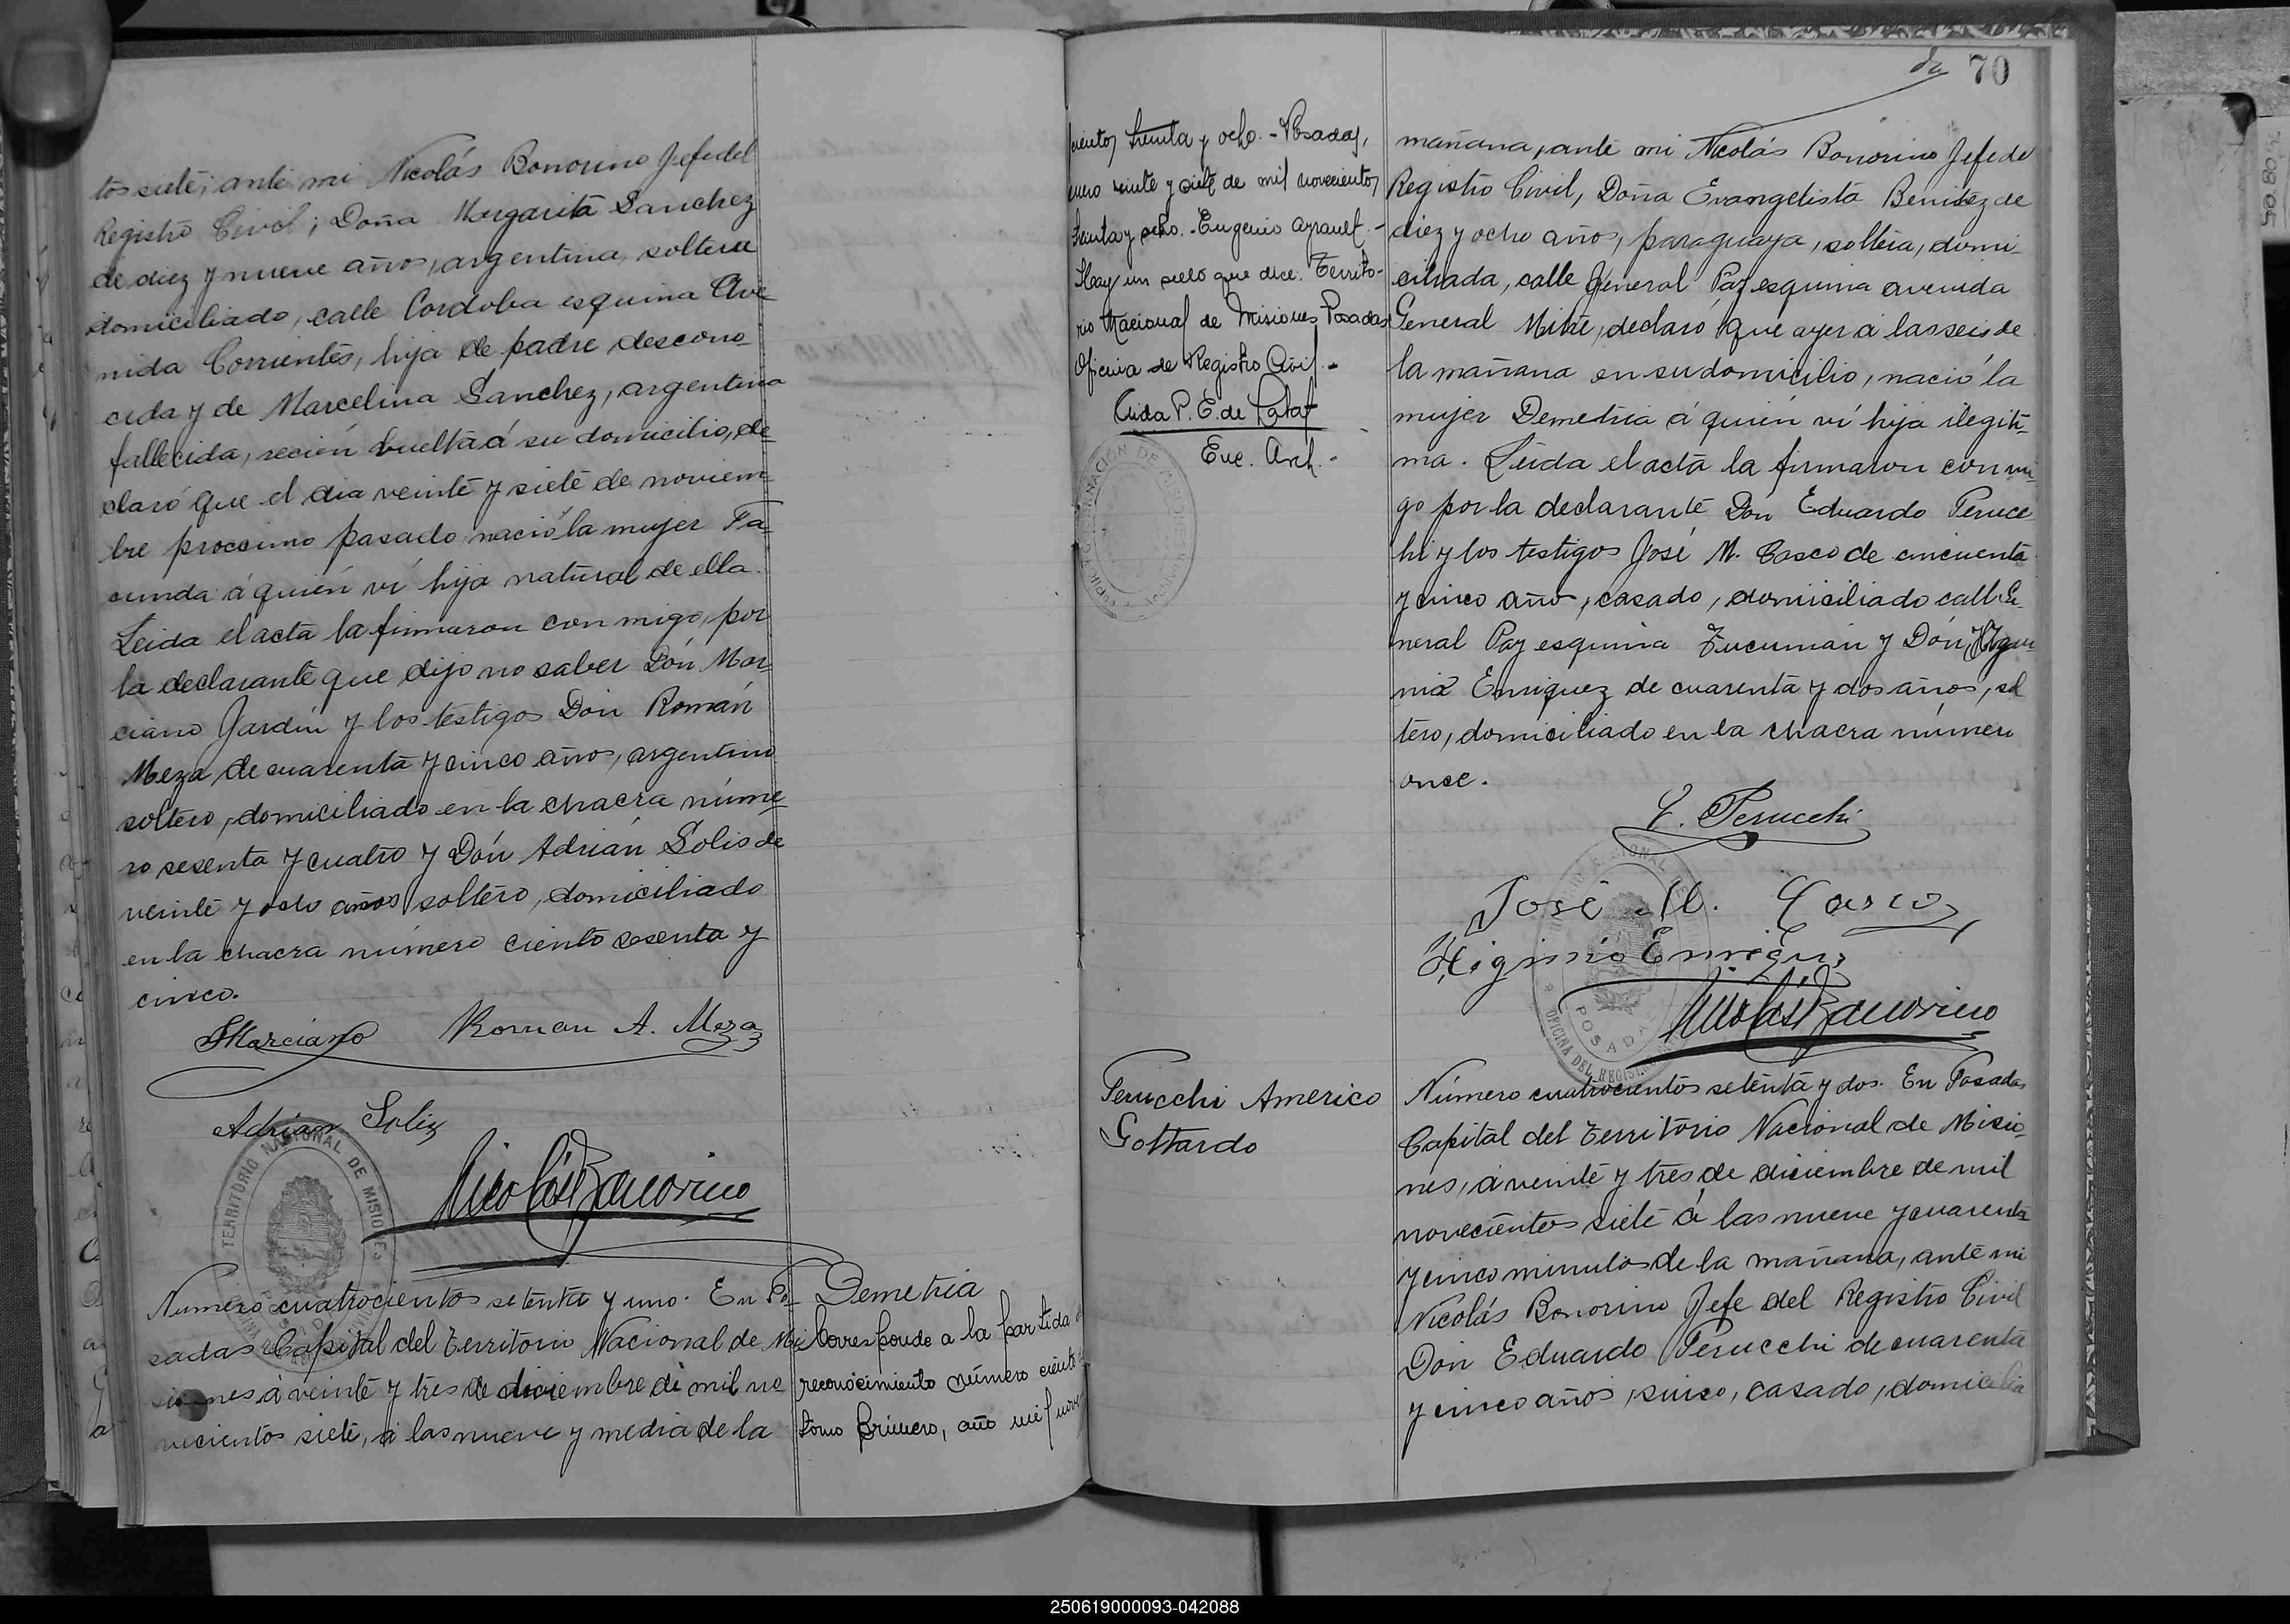 tos siete; ante mi Nicolás Bonorino Jefe del
Registro Civil; Doña Margarita Sanchez
de diez y nueve años, argentina, soltera
domiciliado, calle Cordoba esquina Ave-
nida Corrientes, hija de padre descono-
cida y de Marcelina Sanchez, argentina
fallecida, recien vuelta á su domicilio, de-
claró que el dia veinte y siete de noviem-
bre procsimo pasado, nació la mujer Fa-
cunda á quién ví hija natural de ella.
Leida el acta la firmaron con migo, por
la declarante que dijo no saber Dón Mar-
ciano Jardin y los testigos Don Román
Meza, de cuarenta y cinco años, argentino
soltero, domiciliado en la chacra núme-
ro sesenta y cuatro y Dón Adrián Solis de
veinte y ocho años soltero, domiciliado
en la chacra número ciento sesenta y
cinco.
Marciano Roman A. Meza
Adrian Soliz
Nicolás Bonorino
TERRITORIO NACIONAL DE MISIONES
Numero cuatrocientos setenta y uno. En Po-
sadas Capital del Territorio Nacional de Mi-
siones á veinte y tres de diciembre de mil no
vecientos siete, á las nueve y media de la
Demetria
Corresponde a la partida
reconocimiento número ciento
tomo Primero, año mil nove
70
cientos treinta y ocho. - Posadas,
enero veinte y siete de mil novecientos
treinta y ocho. - Eugenio Ayrault. -
Hay un sello que dice: Territo-
rio Nacional de Misiones Posadas
Oficina de Registro Civil. -
Aida P. E. de
Enc. Arch. -
mañana, ante mi Nicolás Bonorino Jefe de
Registro Civil, Doña Evangelista Benitez de
diez y ocho años, paraguaya, soltera, domi-
ciliada, calle General Paz esquina avenida
General Mitre, declaró que ayer á las seis de
la mañana en su domicilio, nació la
mujer Demetria á quién ví hija ilegiti-
ma. Leida el acta la firmaron con mi-
go por la declarante Dón Eduardo Peruc
hi y los testigos José M. Casco de cincuenta
y cinco años, casado, domiciliado calle Ge-
neral Paz esquina Tucumán y Dón
Enriquez de cuarenta y dos años, sol
tero, domiciliado en la chacra número
once.
E. Perucchi
José M. Casco
Higinio Enriquez
Nicolás Bonorino
POSADAS
OFICINA DEL REGISTRO
Perucchi Americo
Gottardo
Número cuatrocientos setenta y dos. En Posadas
Capital del Territorio Nacional de Misio-
nes, á veinte y tres de diciembre de mil
novecientos siete á las nueve y cuarenta
y cinco minutos de la mañana, ante mi
Nicolás Bonorino Jefe del Registro Civil
Dón Eduardo Perucchi de cuarenta
y cinco años, suiso, casado, domicilia
250619000093-042088